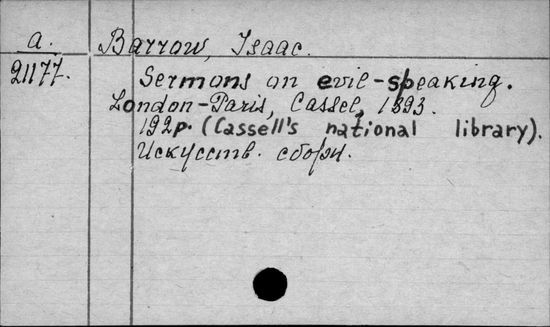 a.
Barrow, Isaac.
21177.
Sermons on evil-speaking.
London-Paris, Cassel, 1893.
192p. (Cassell's national library).
Искусств. сборн.